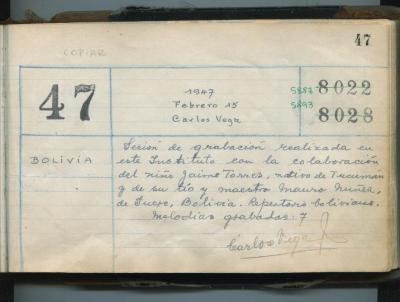 47
COPIAR
47
1947
Febrero 15
Carlos Vega
5887
5893
8022
8028
BOLIVIA
Sesión de grabación realizada en
este Instituto con la colaboración
del niño Jaime Torres, nativo de Tucumán
y de su tío y maestro Mauro Núñez,
de Sucre, Bolivia. Repertorio boliviano.
Melodías grabadas: 7
Carlos Vega